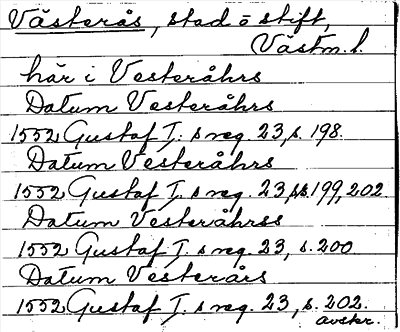 Västerås, stad o stift,
Västm. l.
här i Vesteråhrs
Datum Vesteråhrs
1552 Gustaf I. s reg. 23, s. 198.
Datum Vesteråhrs
1552 Gustaf I. s reg. 23, ss. 199, 202
Datum Vesteråhrss
1552 Gustaf I. s reg. 23, s. 200
Datum Vesterårs
1552 Gustaf I. s reg. 23, s. 202.
avskr.